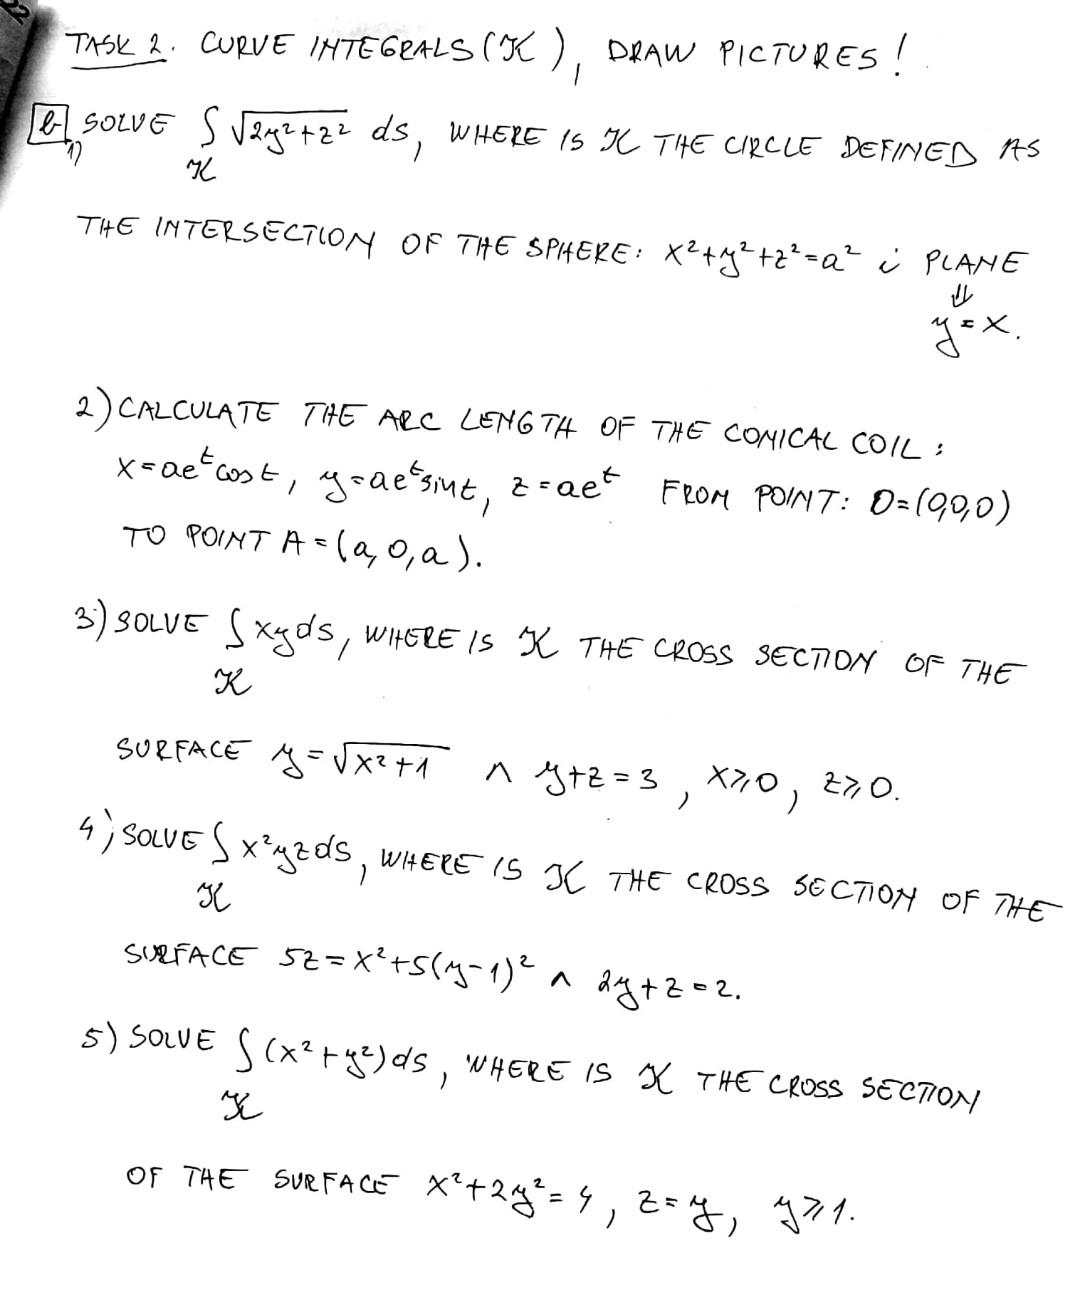 TASK 2. CURVE INTEGRALS (K), DRAW PICTURES!
b) 1) SOLVE ∫ √2y²+z² ds, WHERE IS K THE CIRCLE DEFINED AS
K
THE INTERSECTION OF THE SPHERE: x²+y²+z²=a² i PLANE
⇓
y=x.
2) CALCULATE THE ARC LENGTH OF THE CONICAL COIL:
x=aeᵗcost, y=aeᵗsint, z=aeᵗ FROM POINT: O=(0,0,0)
TO POINT A=(a,0,a).
3) SOLVE ∫ xyds, WHERE IS K THE CROSS SECTION OF THE
K
SURFACE y=√x²+1 ∧ y+z=3, x≥0, z≥0.
4) SOLVE ∫ x²yzds, WHERE IS K THE CROSS SECTION OF THE
K
SURFACE 5z=x²+5(y-1)² ∧ 2y+z=2.
5) SOLVE ∫ (x²+y²)ds, WHERE IS K THE CROSS SECTION
K
OF THE SURFACE x²+2y²=4, z=y, y≥1.